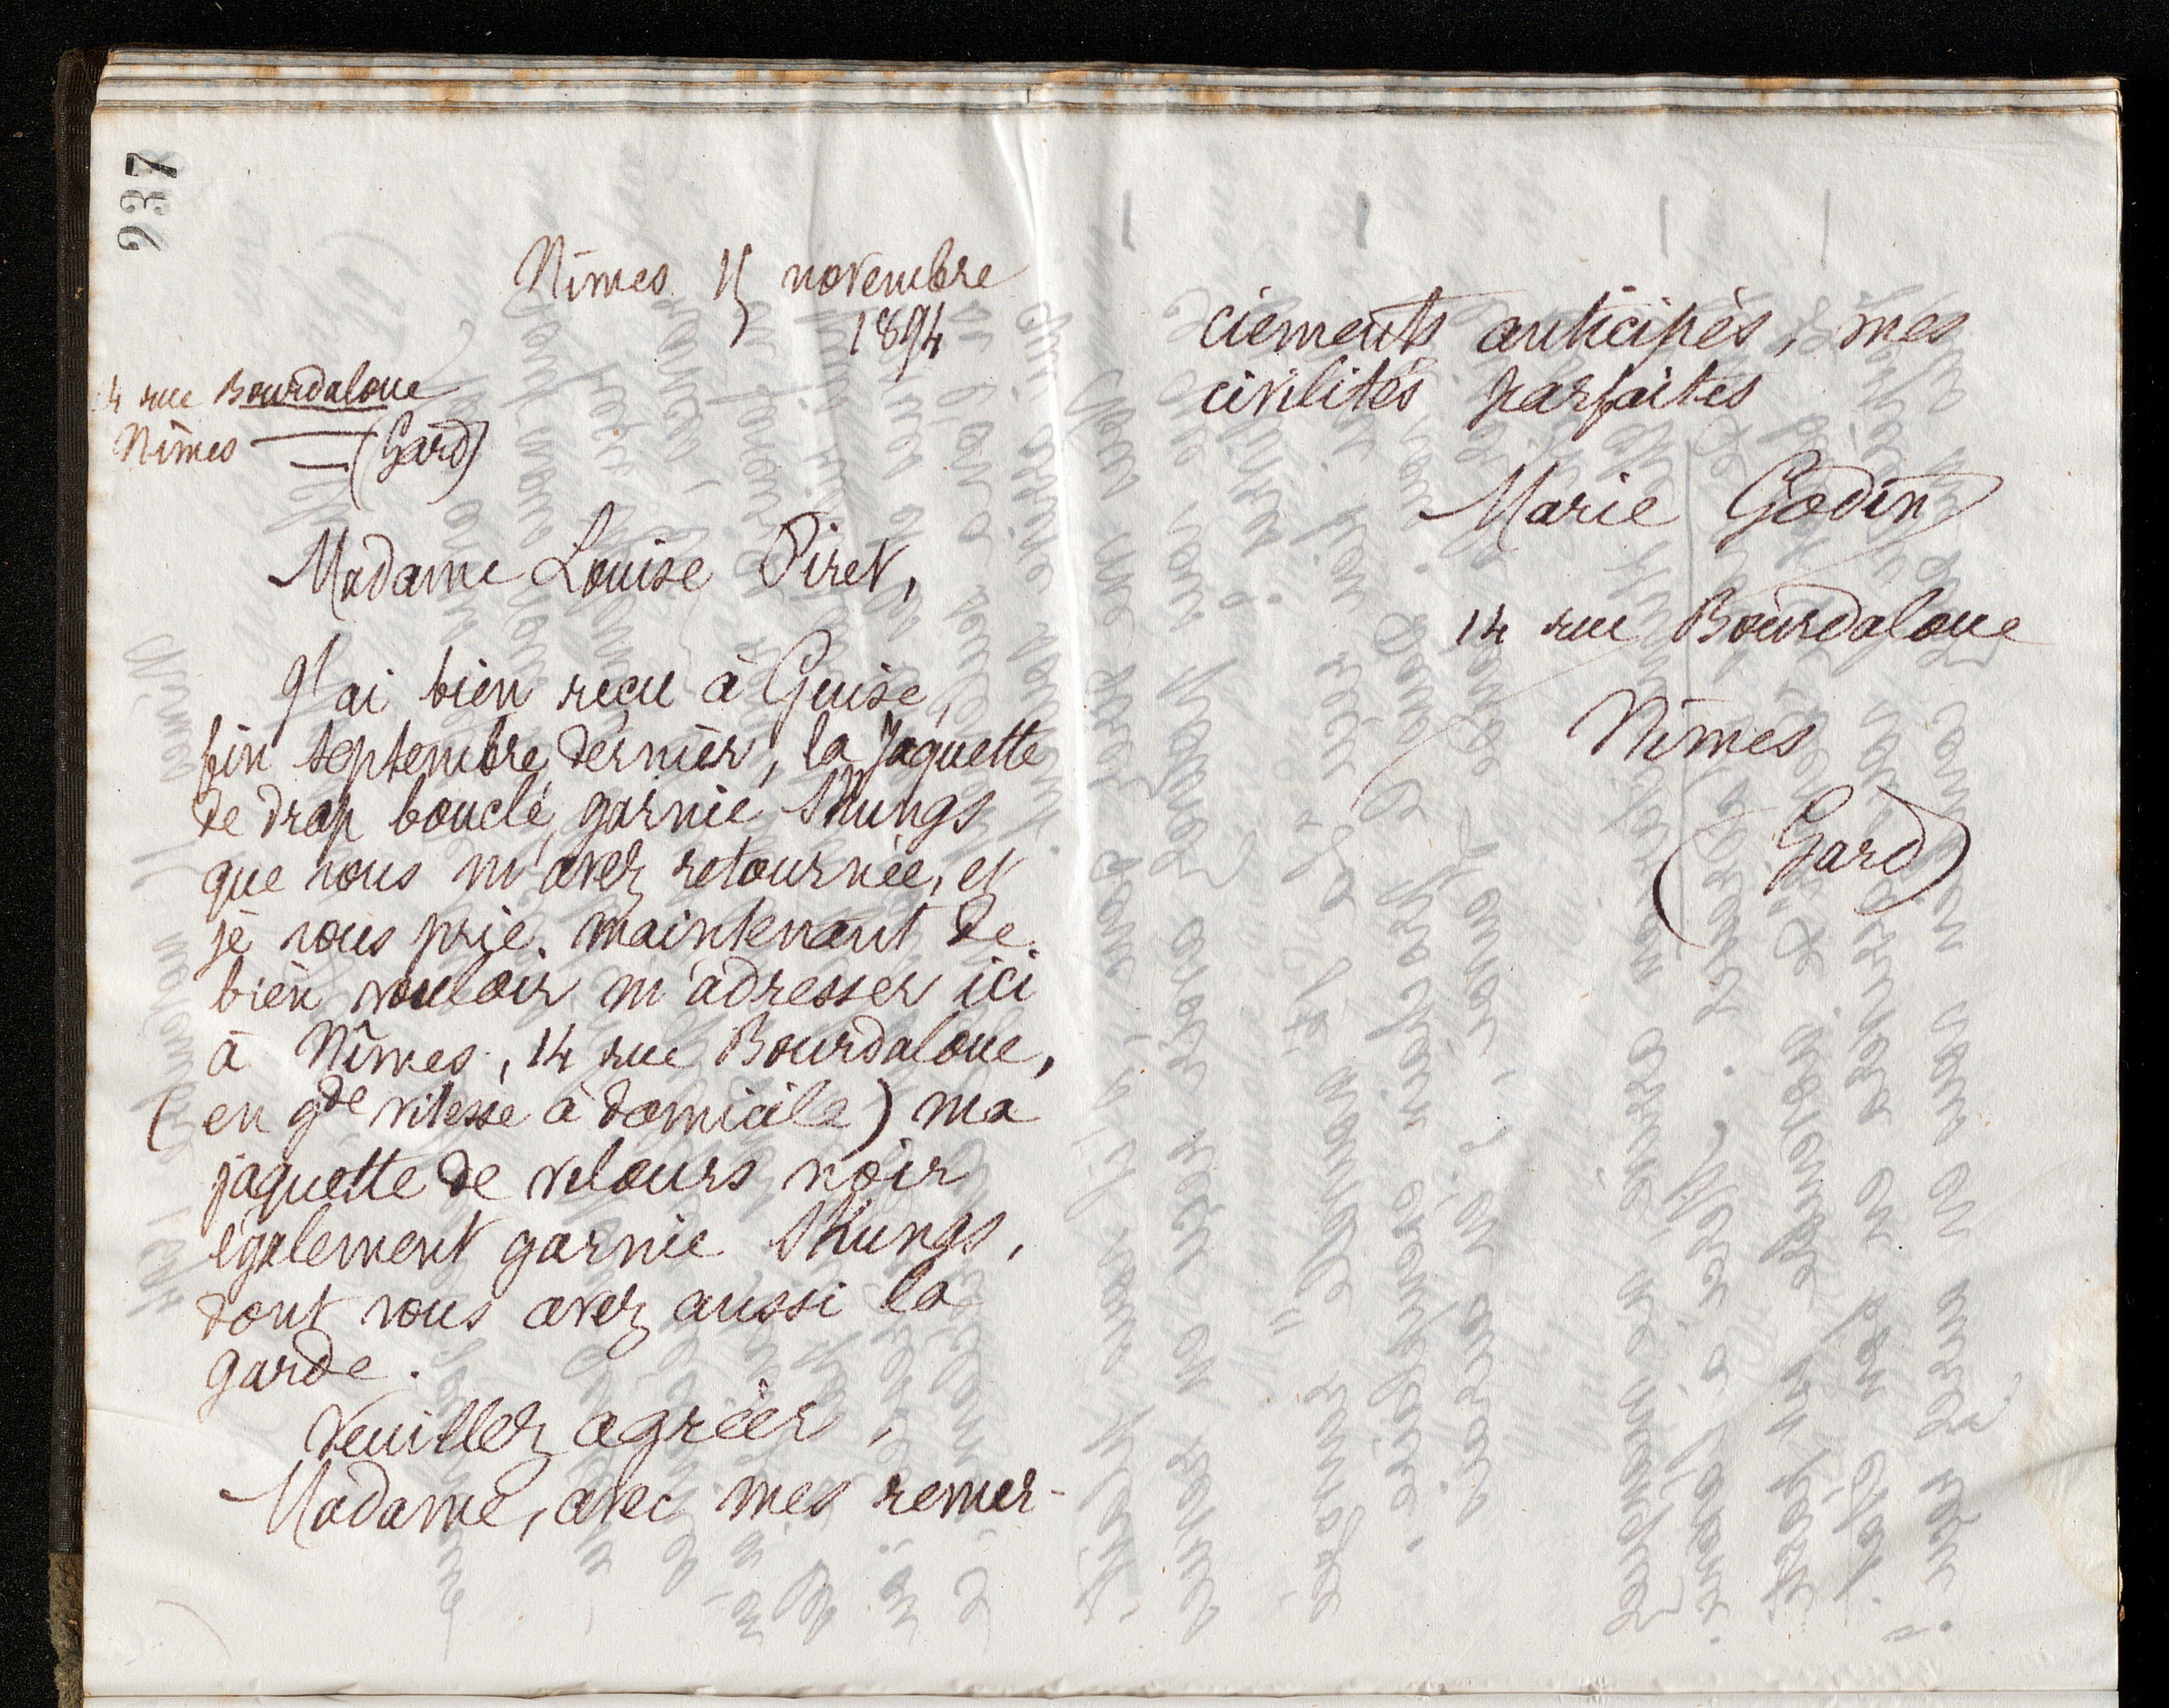 237
Nîmes 15 novembre
1894
14 rue Bourdaloue
Nîmes — (Gard)
Madame Louise Piret,
J'ai bien reçu à Guise,
fin septembre dernier, la Jaquette
de drap bouclé, garnie Skungs
que vous m'avez retournée, et
je vous prie maintenant de
bien vouloir m'adresser ici
à Nîmes, 14 rue Bourdaloue,
(en gde vitesse à domicile) ma
jaquette de velours noir
également garnie Skungs,
dont vous avez aussi la
garde.
Veuillez agréer,
Madame, avec mes remer-
ciements anticipés, mes
civilités parfaites
Marie Godin
14 rue Bourdaloue
Nîmes
(Gard)